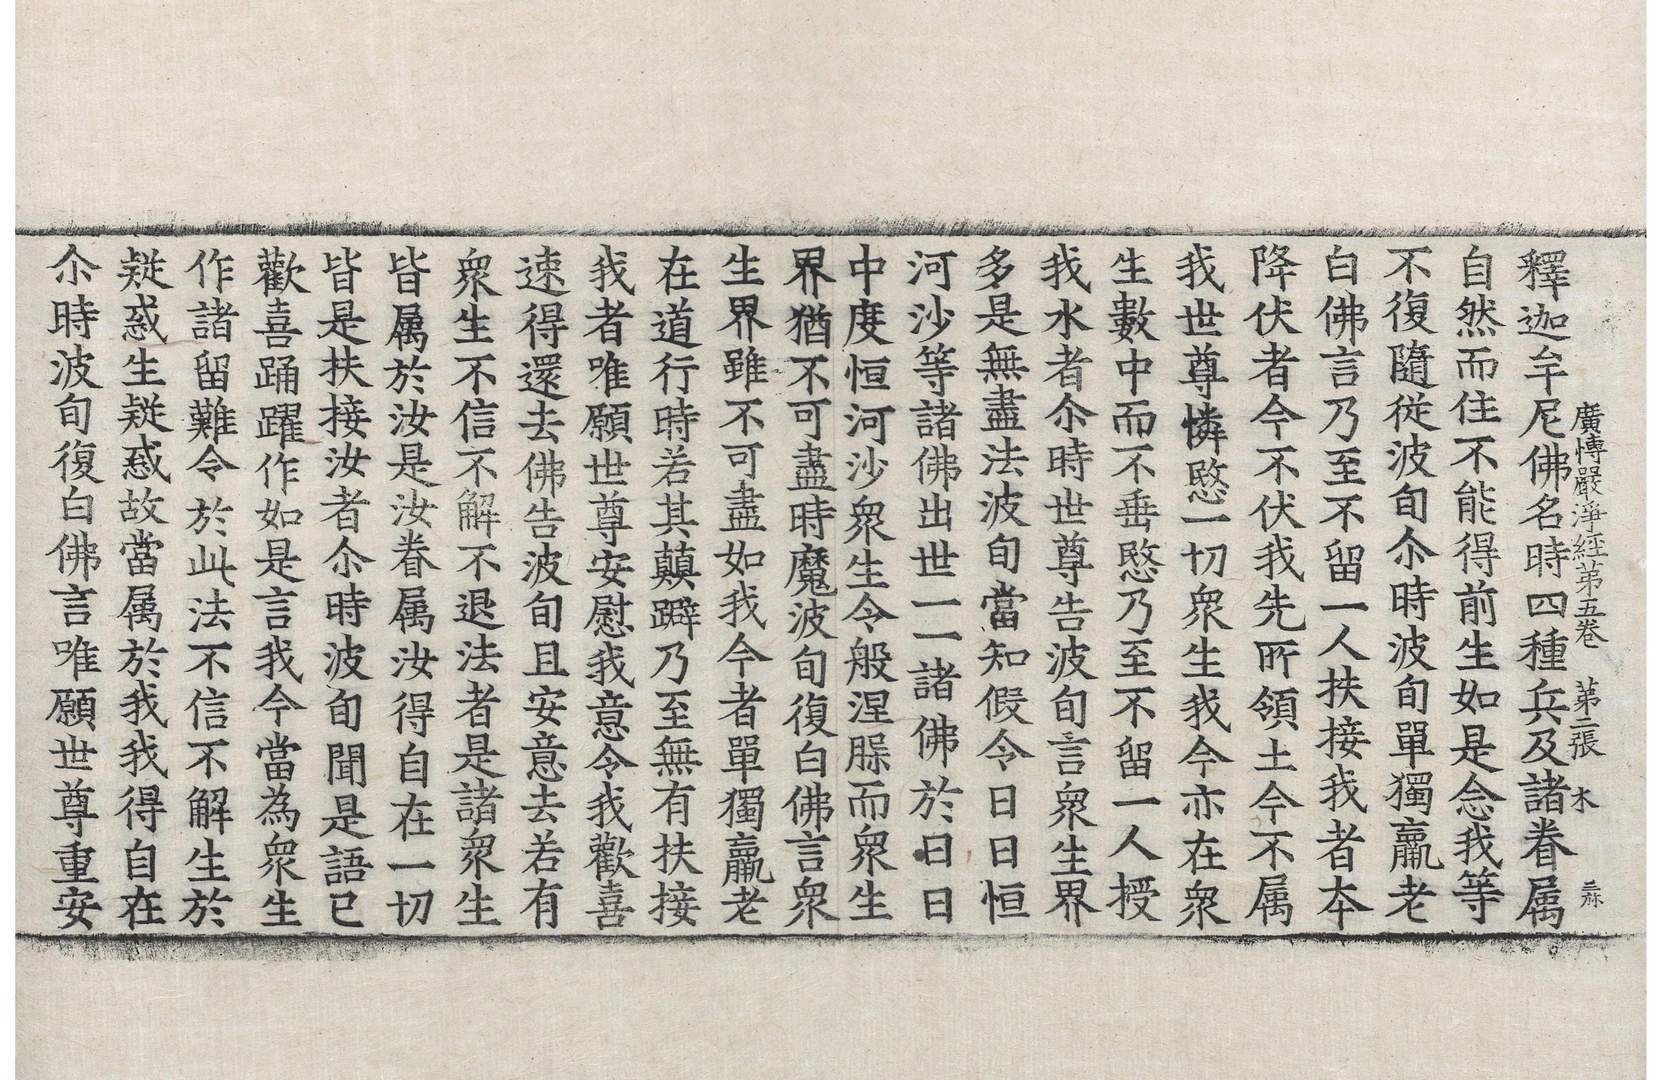 廣愽嚴淨経苐五卷 苐二張 木
釋迦牟尼佛名時四種兵及諸眷属
自然而住不能得前生如是念我等
不復隨従波旬尒時波旬單獨羸老
白佛言乃至不留一人扶接我者夲
降伏者今不伏我先所領土今不属
我世尊憐愍一切衆生我今亦在衆
生數中而不垂愍乃至不留一人授
我水者尒時世尊告波旬言衆生界
多是無盡法波旬當知假令日日恒
河沙等諸佛出世一一諸佛於日日
中度恒河沙衆生令般涅㬳而衆生
界猶不可盡時魔波旬復白佛言衆
生界雖不可盡如我今者單獨羸老
在道行時若其顛躃乃至無有扶接
我者唯願世尊安慰我意令我歡喜
速得還去佛告波旬且安意去若有
衆生不信不解不退法者是諸衆生
皆属於汝是汝眷属汝得自在一切
皆是扶接汝者尒時波旬聞是語已
歡喜踊躍作如是言我今當為衆生
作諸留難令於此法不信不解生於
疑惑生疑惑故當属於我我得自在
尒時波旬復白佛言唯願世尊重安